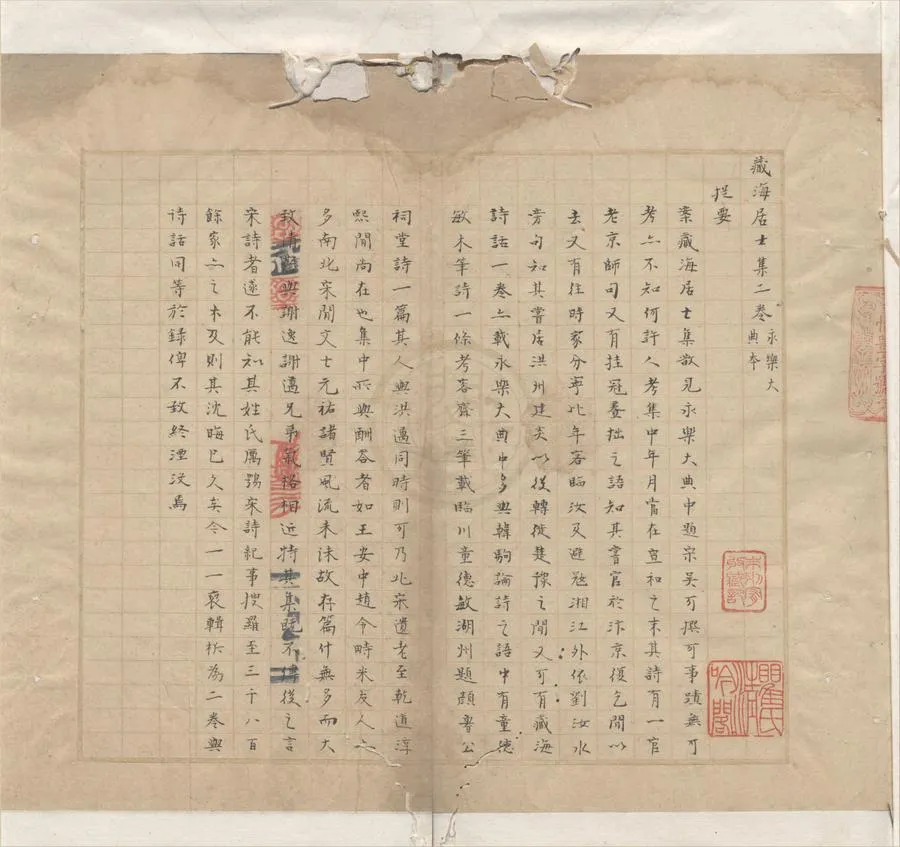 藏海居士集二卷 永樂大典本
提要
案藏海居士集散見永樂大典中題宋吳可撰可事蹟無可
考亦不知何許人考集中年月當在宣和之末其詩有一官
老京師句又有挂冠養拙之語知其嘗官於汴京復乞閒以
去又有往時家分寧比年客臨汝及避寇湘江外依劉汝水
旁句知其嘗居洪州建炎以後轉徙楚豫之間又可有藏海
詩話一卷亦載永樂大典中多與韓駒論詩之語中有童德
敏木筆詩一條考容齋三筆載臨川童德敏湖州題顏魯公
祠堂詩一篇其人與洪邁同時則可乃北宋遺老至乾道淳
熙閒尚在也集中所與酬答者如王安中趙令畤米友人之
多南北宋閒文士元祐諸賢風流未沫故存篇什無多而大
致清警與謝逸謝薖兄弟氣格相近特其集既不傳後之言
宋詩者遂不能知其姓氏厲鶚宋詩紀事搜羅至三千八百
餘家亦之未及則其沈晦已久矣今一一裒輯析為二卷與
詩話同等於錄俾不致終湮没焉